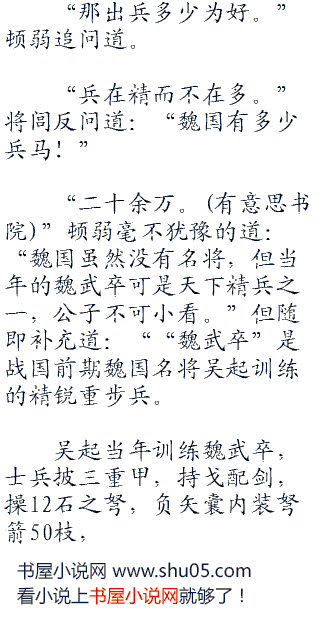 “那出兵多少为好。”
顿弱追问道。
“兵在精而不在多。”
将闾反问道：“魏国有多少
兵马！”
“二十余万。(有意思书
院)”顿弱毫不犹豫的道：
“魏国虽然没有名将，但当
年的魏武卒可是天下精兵之
一，公子不可小看。”但随
即补充道：““魏武卒”是
战国前期魏国名将吴起训练
的精锐重步兵。
吴起当年训练魏武卒，
士兵披三重甲，持戈配剑，
操12石之弩，负矢囊内装弩
箭50枝，
书屋小说网 www.shu05.com
看小说上书屋小说网就够了！